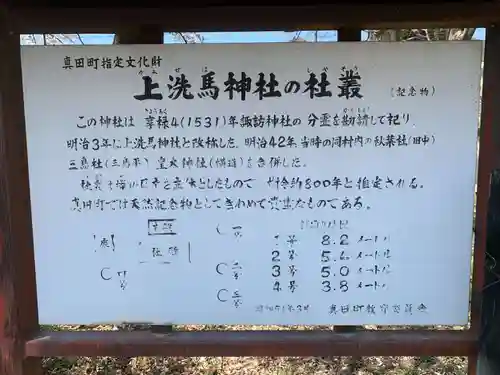 真田町指定文化財
上洗馬神社の社叢 (記念物)
かみせばじんじゃ しゃそう
この神社は 享禄4(1531)年諏訪神社の 分霊を勘請して祀り
明治3年に上洗馬神社と改称した。明治42年、当時の同村内の秋葉社(田中)
三島社(三島平) 皇太神社 を合併した。
としたもので 樹令約800年と推定される。
真田町では天然記念物としてきわめて貴重なものである。
1号 8.2 メートル
2号 5.6 メートル
3号 5.0 メートル
4号 3.8 メートル
一号
二号
三号
四号
真田町教育委員会